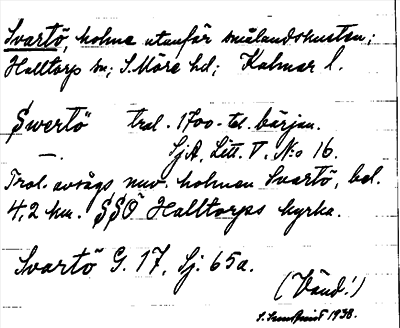 Svartö, holme utanför smålandskusten;
Halltorp sn; S. Möre hd; Kalmar l.
Swertö trol. 1700-tal. början.
—. SjA, Litt. V. No 16.
Trol. avsågs nuv. holmen Svartö, bel.
4,2 km. SSÖ Halltorps kyrka.
Svartö G. 17, Sj. 65a.
(Vänd!)
1938.